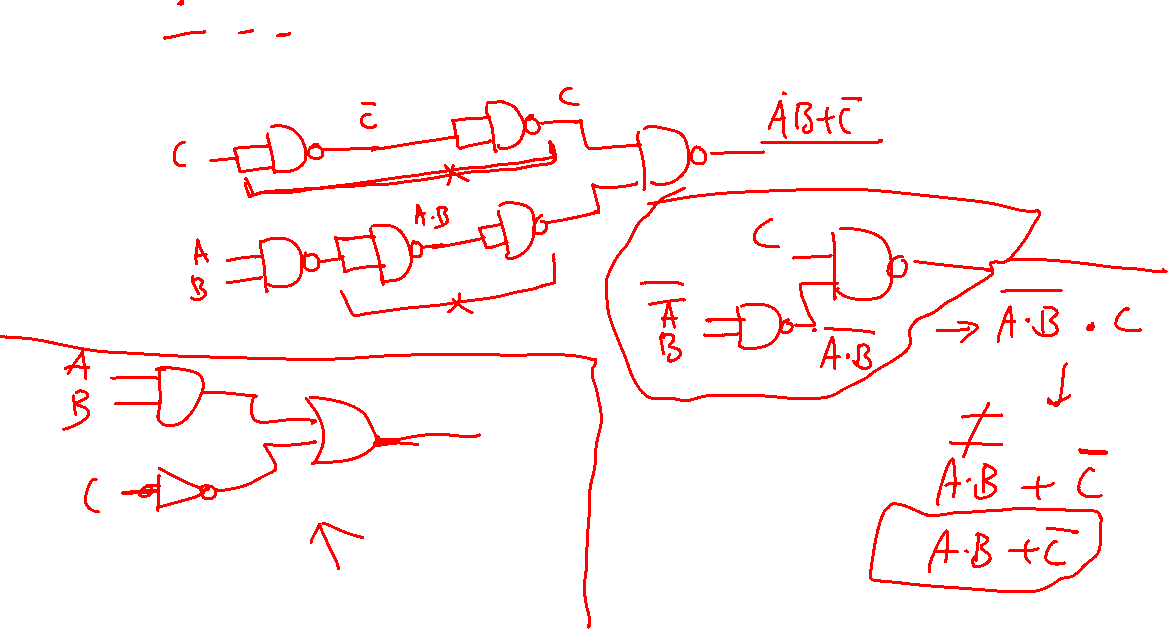 C̅
C
C
A̅B+C̅
A·B
A
B
C
A̅
B
A̅·̅B̅
A̅·̅B̅ · C
A
B
C
A·B + C̅
A·B + C̅